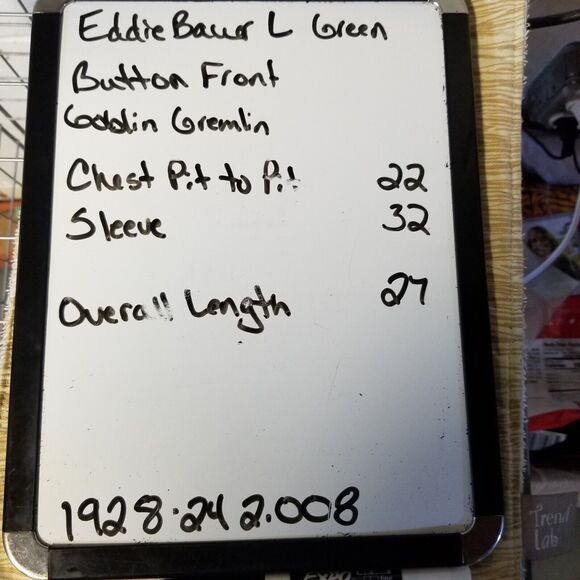 Eddie Bauer L Green
Button Front
Goblin Gremlin
Chest Pit to Pit 22
Sleeve 32
Overall Length 27
1928.242.008
EXPO
Trend
Lab